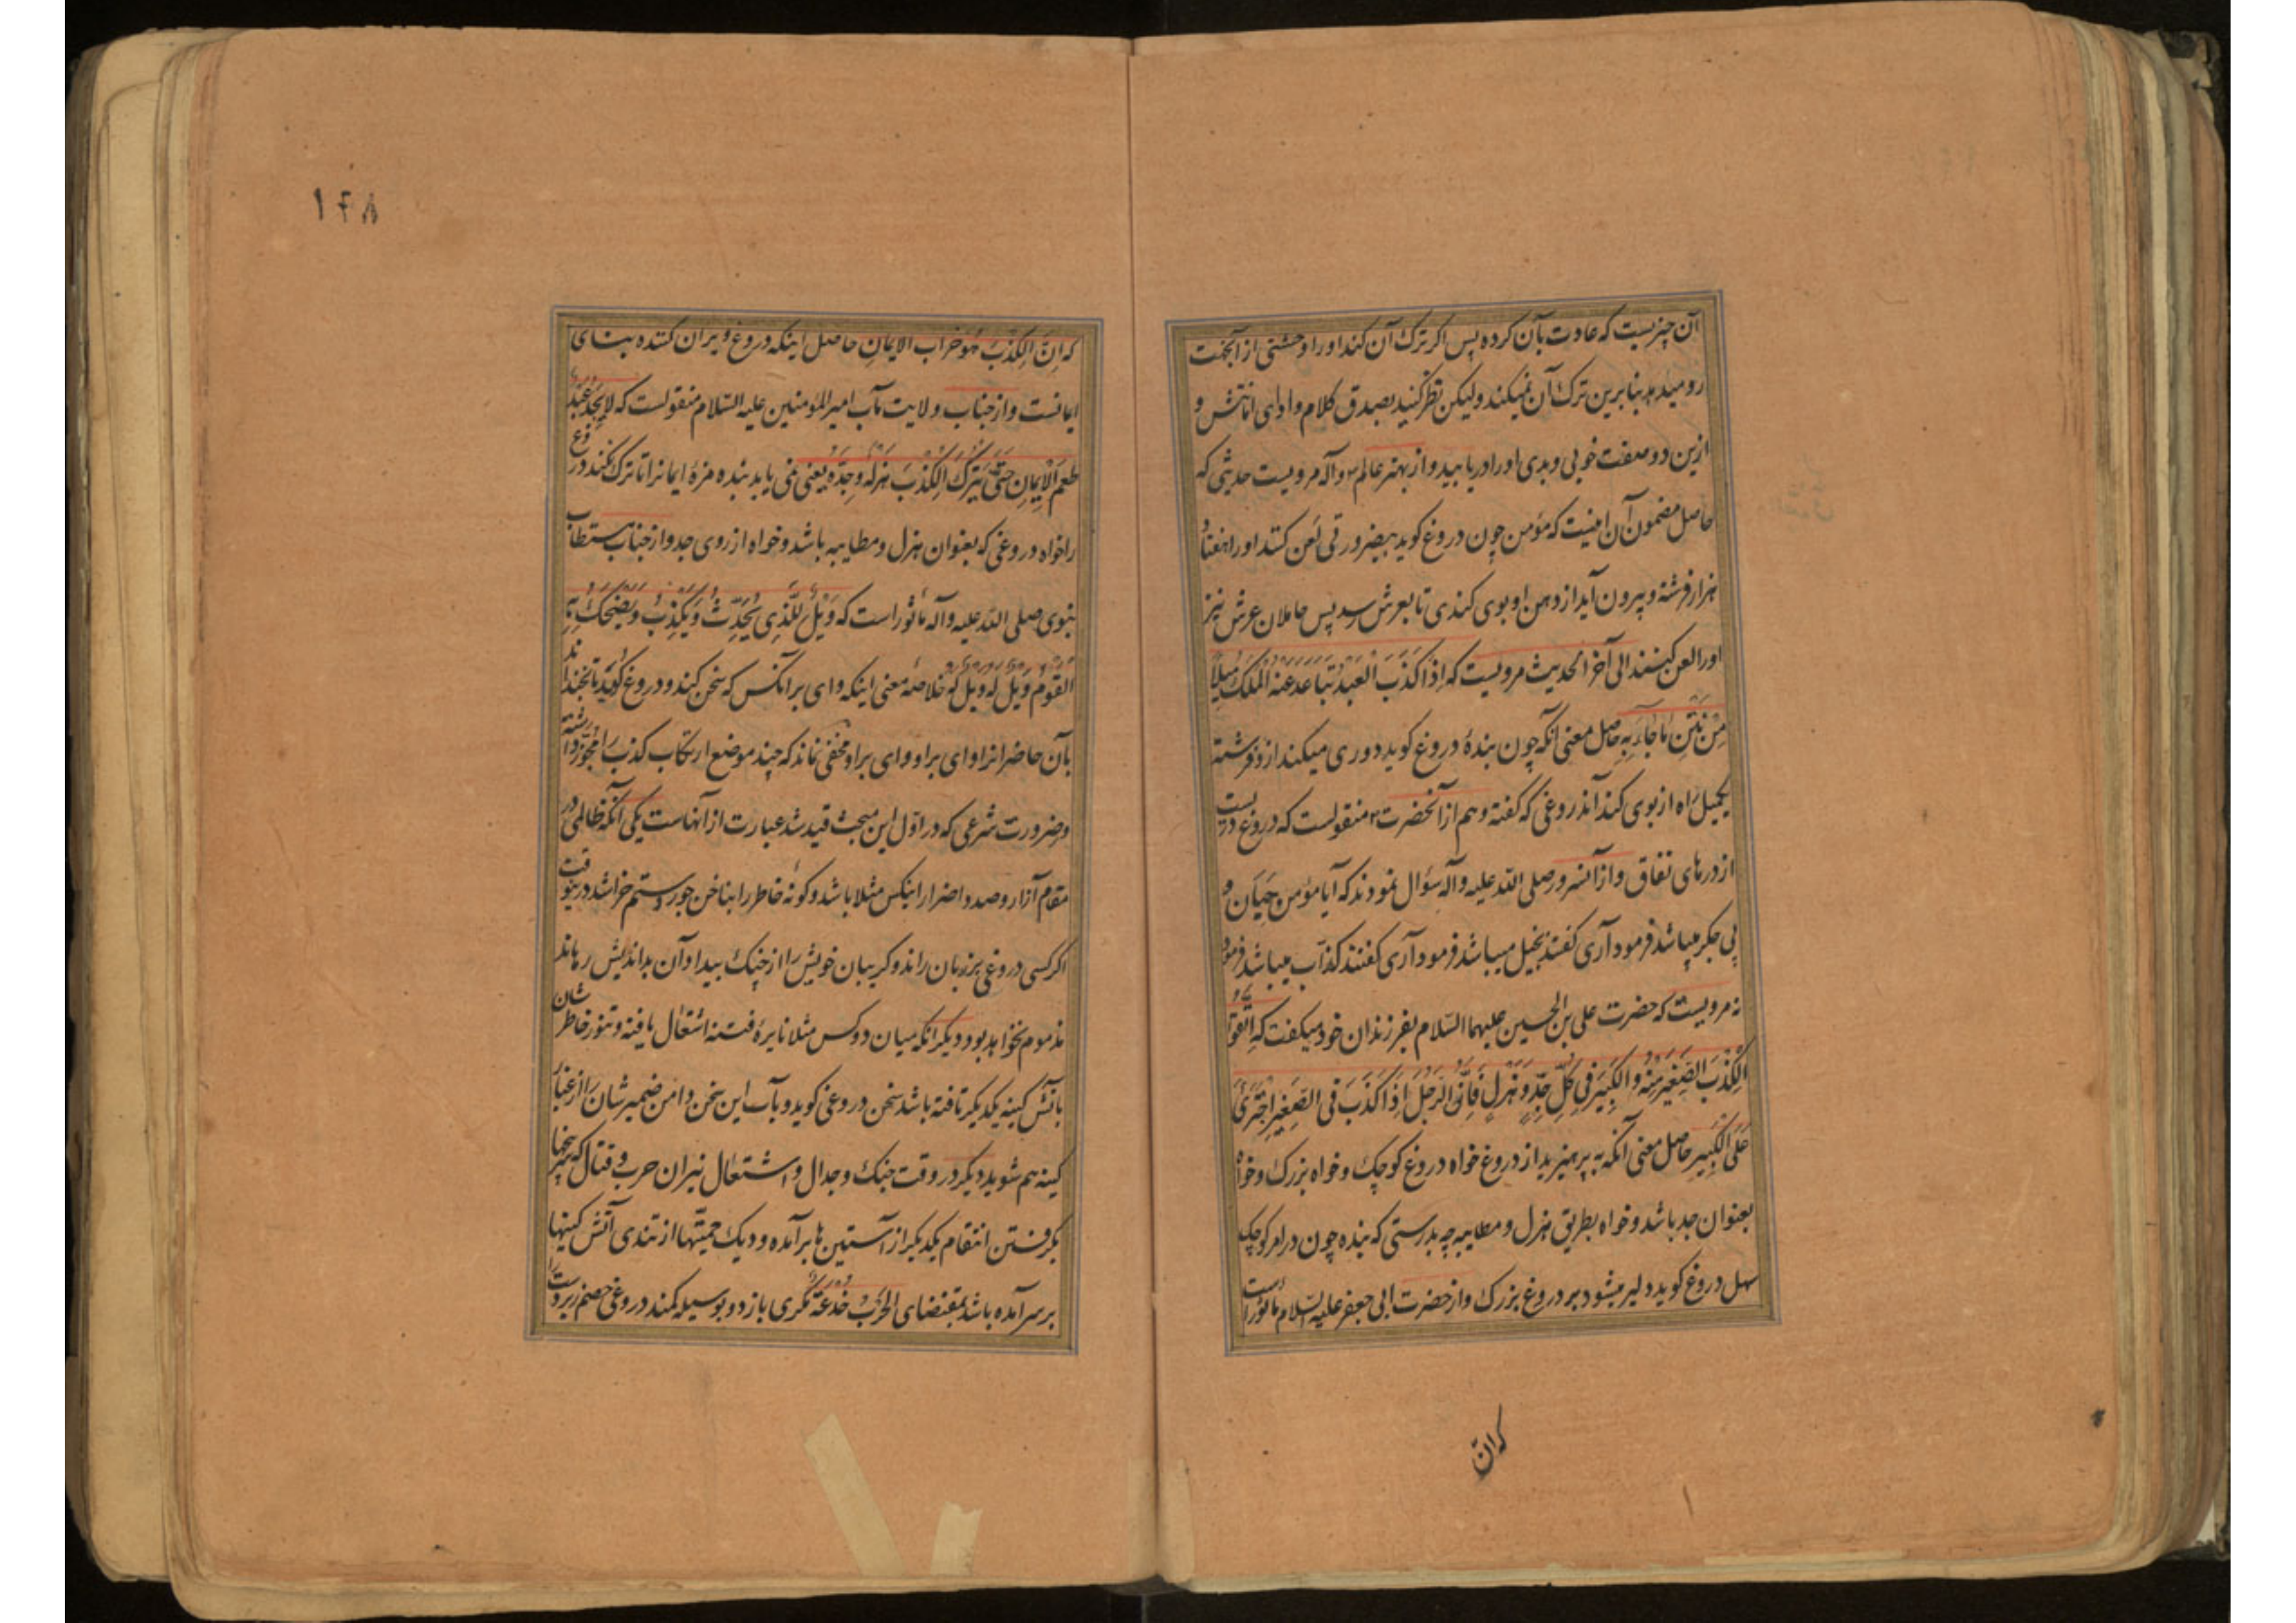 آن چیزیست که عادت بآن کرده پس اکر ترک آن کند اورا وحشتی از آنجهت
رو میدهد بنابرین ترک آن نمیکند ولیکن نظر کنید بصدق کلام و ادای امانتش و
ازین دو صفت خوبی و بدی اورا دریابید و از بهتر عالم ص وآله مرویست حدیثی که
حاصل مضمون آن اینست که مؤمن چون دروغ کوید بیضرورتی لعن کنند اورا هفتاد
هزار فرشته و بیرون آید از دهن او بوی کندی تا بعرش رسد پس حاملان عرش نیز
اورا لعن کنند الی آخر الحدیث مرویست که اِذا کَذَبَ العَبدُ تَبَاعَدَ عَنهُ المَلَکُ مَسِیلاً
مِن نَتنِ مَا جَاءَ بِهِ حاصل معنی آنکه چون بندهٔ دروغ کوید دوری میکند ازو فرشته
یکمیل راه از بوی کند آندروغی که کفته و هم از آنحضرت ص منقولست که دروغ دریست
از درهای نفاق و از آنسرور صلی الله علیه وآله سؤال نمودند که آیا مؤمن جَبَان و
بی جکر میباشد فرمود آری کفتند بخیل میباشد فرمود آری کفتند کذّاب میباشد فرمود
نه مرویست که حضرت علی بن الحسین علیهما السّلام بفرزندان خود میکفت که اِتَّقُوا
الکَذِبَ الصَّغِیرَ مِنهُ وَ الکَبِیرَ فِی کُلِّ جِدٍّ وَ هَزلٍ فَاِنَّ الرَّجُلَ اِذَا کَذَبَ فِی الصَّغِیرِ اجتَرَئَ
عَلَی الکَبِیرِ حاصل معنی آنکه به پرهیزید از دروغ خواه دروغ کوچک و خواه بزرک و خواه
بعنوان جد باشد و خواه بطریق هزل و مطایبه چه بدرستی که بنده چون در امر کوچک
سهل دروغ کوید دلیر میشود بر دروغ بزرک و از حضرت ابی جعفر علیه السّلام ماثور است
که انّ
۱۴۸
که اِنَّ الکِذبَ هُوَ خراب الایمانِ حاصل اینکه دروغ ویران کننده بنای
ایمانست و از جناب ولایت مآب امیر المؤمنین علیه السّلام منقولست که لایَجِدُ عَبدٌ
طَعمَ الاِیمانِ حَتّی یَترُکَ الکَذِبَ هَزلَهُ وَ جِدَّهُ یعنی نمی یابد بنده مزهٔ ایمانرا تا ترک نکند دروغ
را خواه دروغی که بعنوان هزل و مطایبه باشد و خواه از روی جد و از جناب مستطاب
نبوی صلی الله علیه وآله مأثور است که وَیلٌ لِلَّذِی یُحَدِّثُ وَ یَکذِبُ وَ یُضحِکُ بِهِ
القَومَ وَیلٌ لَهُ وَیلٌ لَهُ خلاصهٔ معنی اینکه وای بر آنکس که سخن کند و دروغ کوید تا بخنداند
بآن حاضرانرا وای براو و وای براو مخفی نماند که چند موضع ارتکاب کذب را مجوّز داشته‌اند
و ضرورت شرعی که در اوّل این مبحث قید شد عبارت از آنهاست یکی آنکه ظالمی در
مقام آزار و صدد اضرار اینکس مثلا باشد و کونهٔ خاطر را بناخن جور و ستم خراشد درینوقت
اکر کسی دروغی بر زبان راند و کریبان خویش را از چنک بیداد آن بداندیش رهاند
مذموم نخواهد بود دیکر آنکه میان دو کس مثلا نایرهٔ فتنه اشتعال یافته و تنور خاطرشان
باتش کینه یکدیکر تافته باشد سخن دروغی کوید و بآب این سخن دامن ضمیرشان را از غبار
کینه هم شوید دیکر در وقت جنک و جدال و اشتعال نیران حرب و قتال که پنجها
بکرفتن انتقام یکدیکر از آستین ها برآمده و دیک حمیّتها از تندی آتش کینها
بر سر آمده باشد بمقتضای الحَربُ خُدعَةٌ مکری بازد و بوسیله کمند دروغی خصم زبردست را